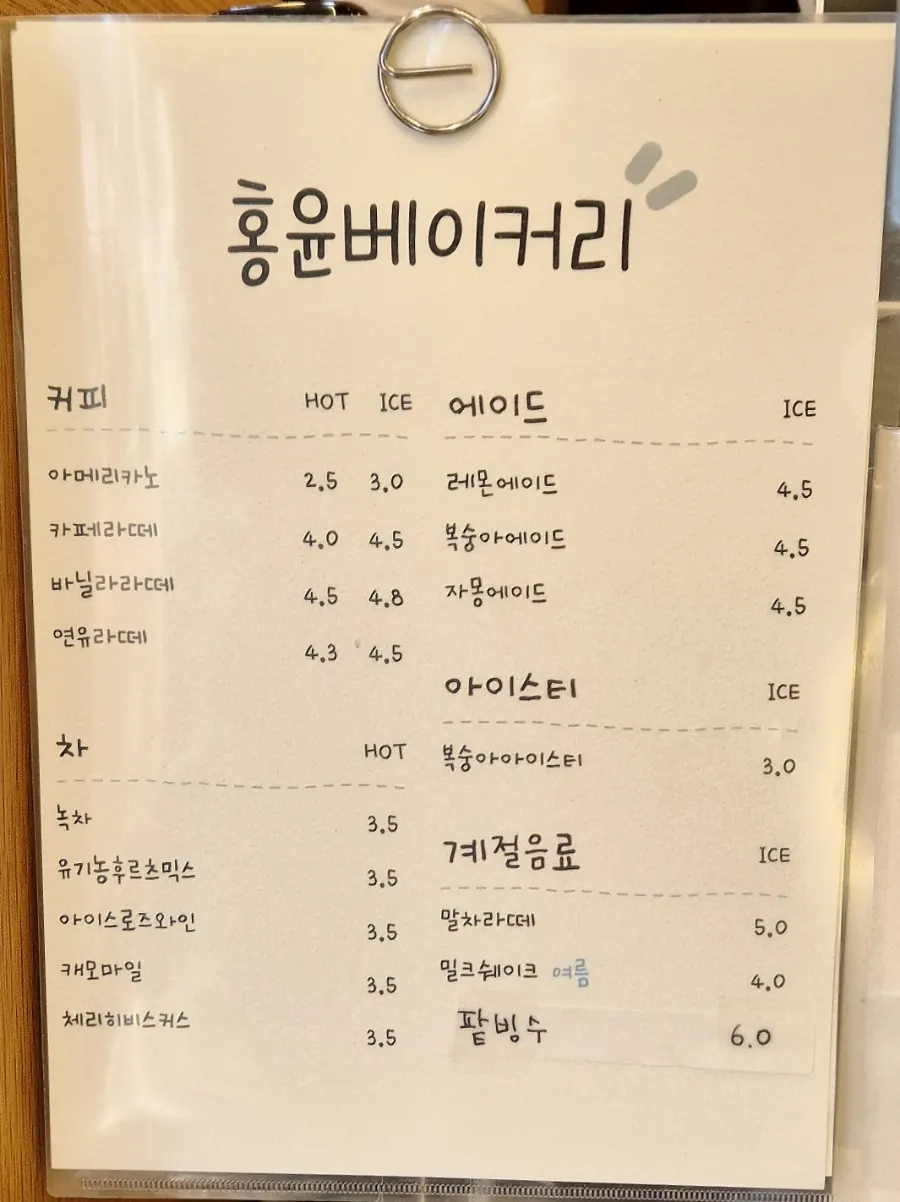 홍윤베이커리
커피 HOT ICE
아메리카노 2.5 3.0
카페라떼 4.0 4.5
바닐라라떼 4.5 4.8
연유라떼 4.3 4.5
차 HOT
녹차 3.5
유기농후르츠믹스 3.5
아이스로즈와인 3.5
캐모마일 3.5
체리히비스커스 3.5
에이드 ICE
레몬에이드 4.5
복숭아에이드 4.5
자몽에이드 4.5
아이스티 ICE
복숭아아이스티 3.0
계절음료 ICE
말차라떼 5.0
밀크쉐이크 여름 4.0
팥빙수 6.0